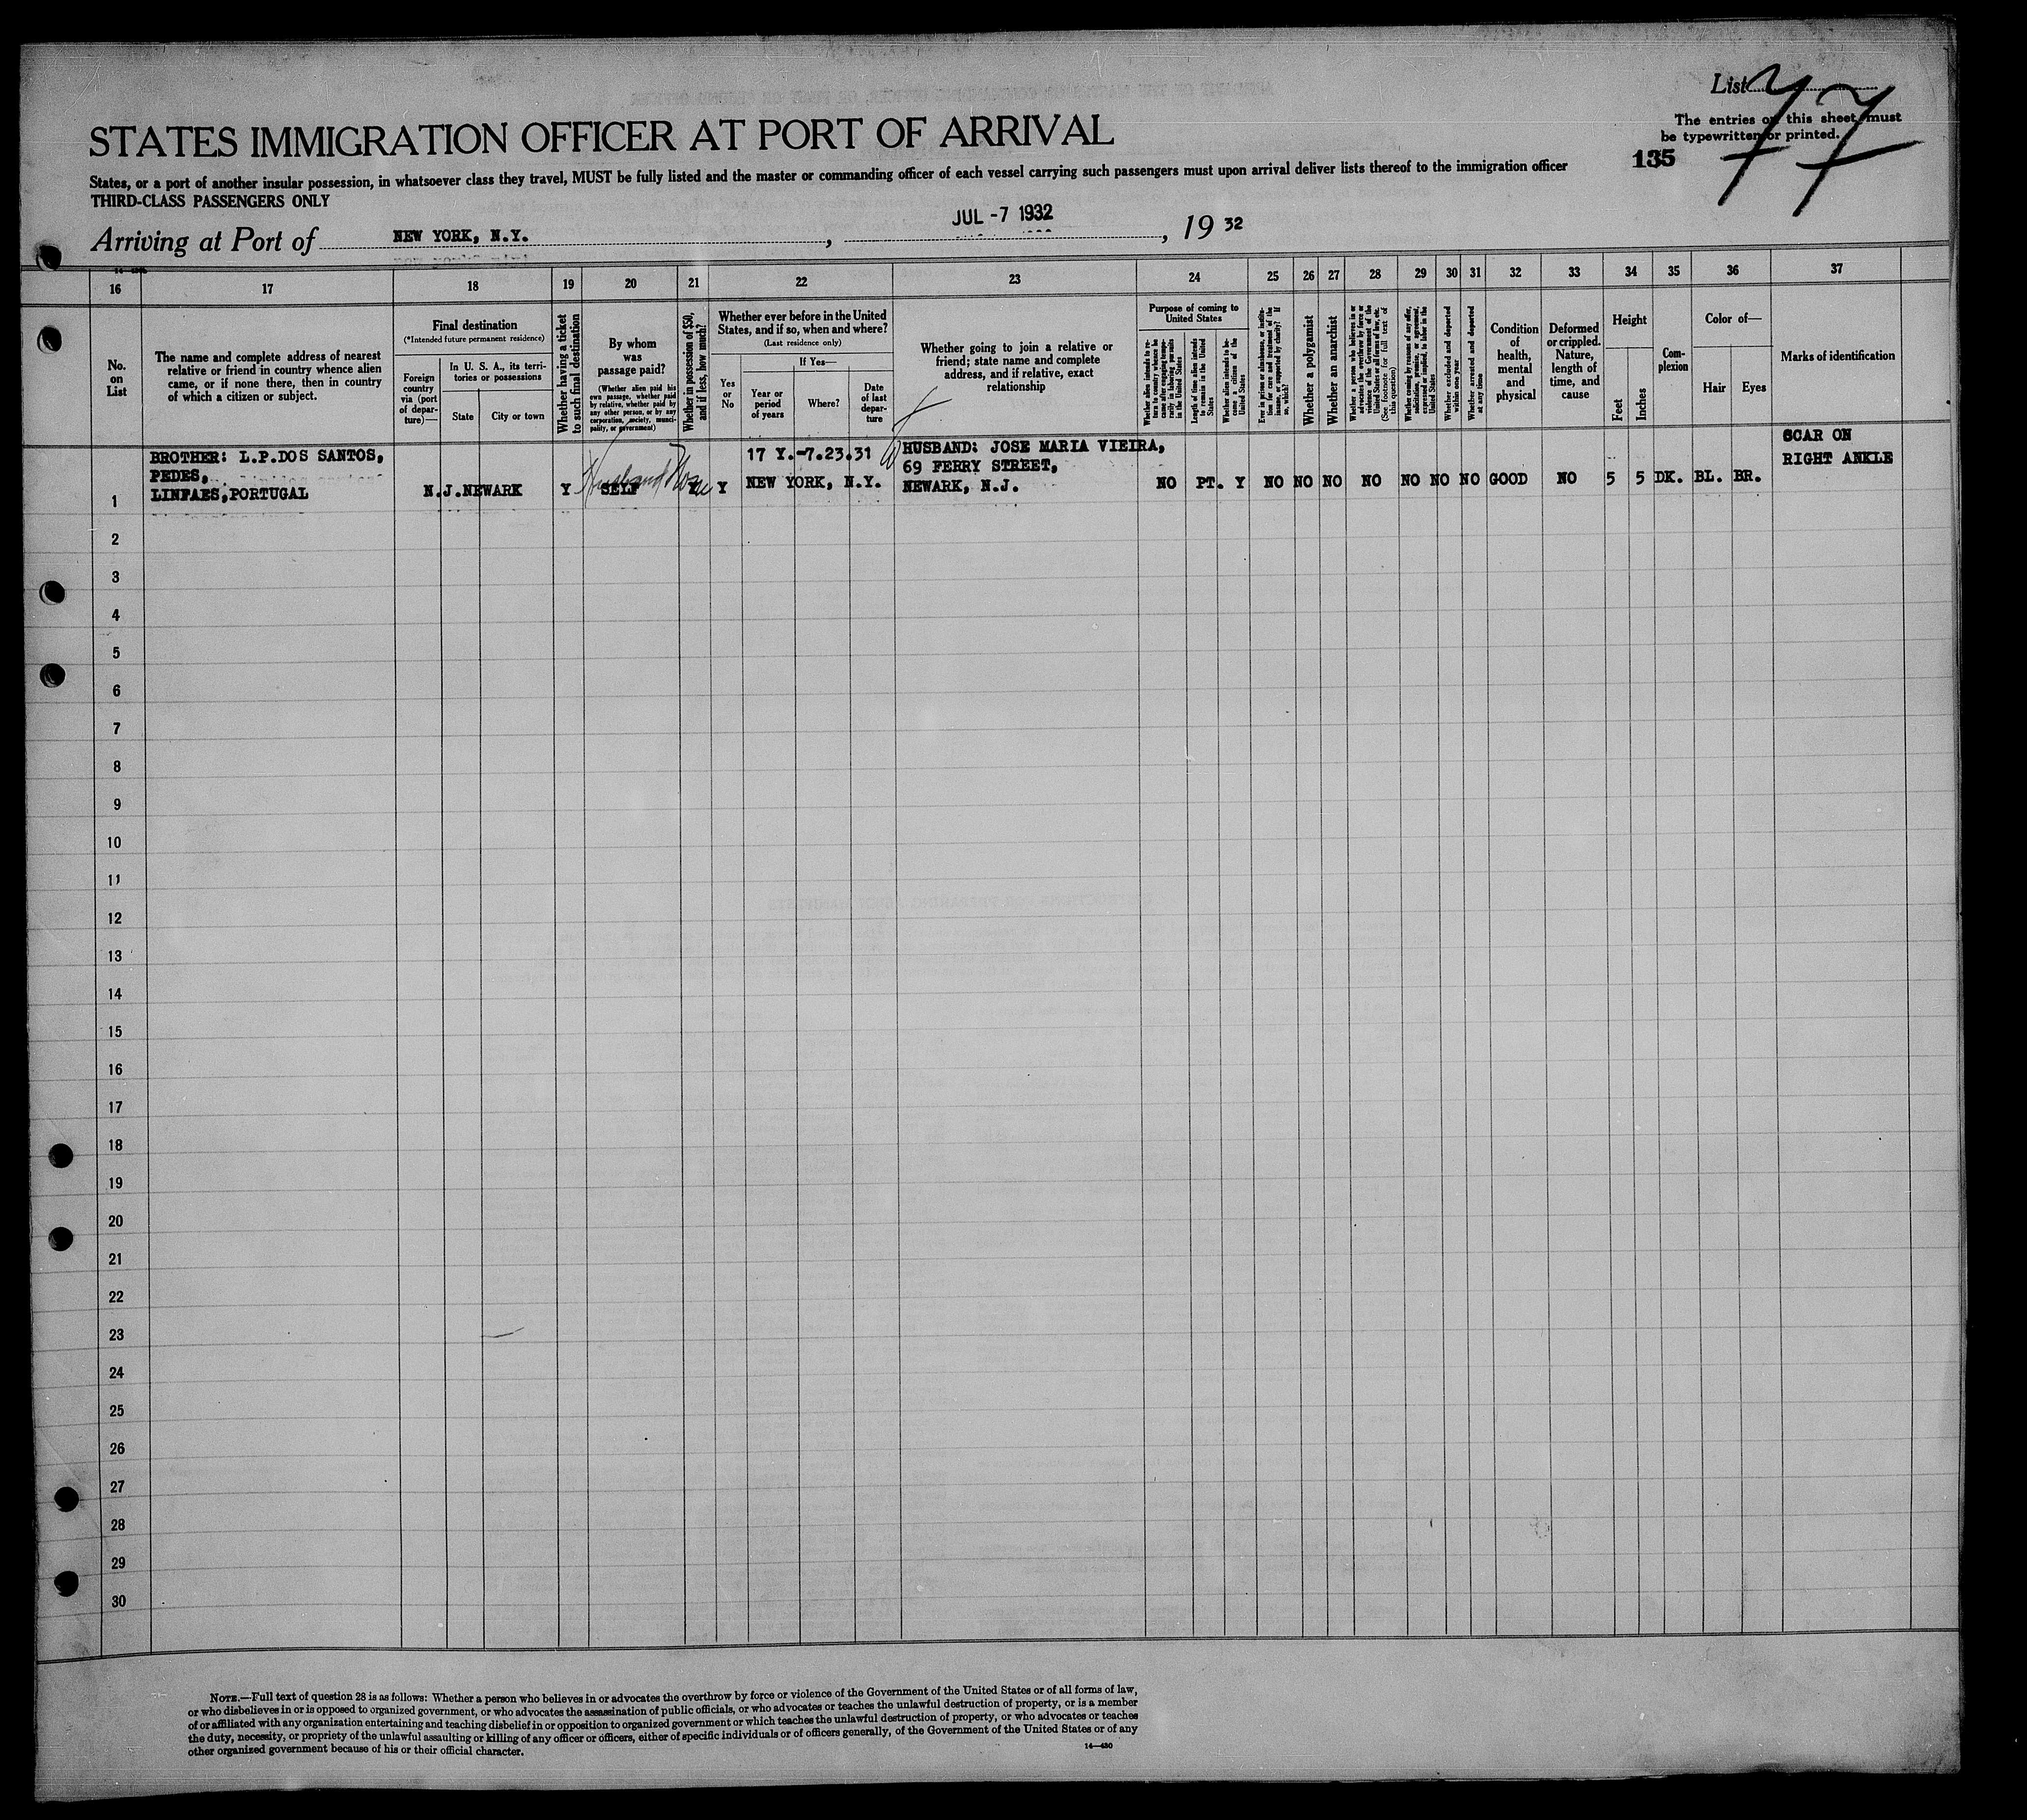 List 77
The entries on this sheet must
be typewritten or printed.
135
STATES IMMIGRATION OFFICER AT PORT OF ARRIVAL
States, or a port of another insular possession, in whatsoever class they travel, MUST be fully listed and the master or commanding officer of each vessel carrying such passengers must upon arrival deliver lists thereof to the immigration officer
THIRD-CLASS PASSENGERS ONLY
JUL -7 1932
Arriving at Port of NEW YORK, N.Y. , , 19 32
16 17 18 19 20 21 22 23 24 25 26 27 28 29 30 31 32 33 34 35 36 37
No.
on
List
The name and complete address of nearest
relative or friend in country whence alien
came, or if none there, then in country
of which a citizen or subject.
Final destination
(*Intended future permanent residence)
Foreign
country
via (port
of depar-
ture)—
In U. S. A., its terri-
tories or possessions
State
City or town
Whether having a ticket
to such final destination
By whom
was
passage paid?
(Whether alien paid his
own passage, whether paid
by relative, whether paid by
any other person, or by any
corporation, society, munici-
pality, or government)
Whether in possession of $50,
and if less, how much?
Whether ever before in the United
States, and if so, when and where?
(Last residence only)
Yes
or
No
If Yes—
Year or
period
of years
Where?
Date
of last
depar-
ture
Whether going to join a relative or
friend; state name and complete
address, and if relative, exact
relationship
Purpose of coming to
United States
Whether alien intends to re-
turn to country whence he
came after engaging tempo-
rarily in laboring pursuits
in the United States
Length of time alien intends
to remain in the United
States
Whether alien intends to be-
come a citizen of the
United States
Ever in prison or almshouse, or institu-
tion for care and treatment of the
insane, or supported by charity? If
so, which?
Whether a polygamist
Whether an anarchist
Whether a person who believes in or
advocates the overthrow by force or
violence of the Government of the
United States or all forms of law, etc.
(See footnote for full text of
this question)
Whether coming by reasons of any offer,
solicitation, promise, or agreement,
expressed or implied, to labor in the
United States
Whether excluded and deported
within one year
Whether arrested and deported
at any time
Condition
of
health,
mental
and
physical
Deformed
or crippled.
Nature,
length of
time, and
cause
Height
Feet
Inches
Com-
plexion
Color of—
Hair
Eyes
Marks of identification
BROTHER: L.P.DOS SANTOS,
PEDES,
LINFAES,PORTUGAL
1
N.J.NEWARK
Y
Husband
SELF
None
Y
17 Y.-7.23.31
NEW YORK, N.Y.
HUSBAND: JOSE MARIA VIEIRA,
69 FERRY STREET,
NEWARK, N.J.
NO PT. Y NO NO NO NO NO NO NO GOOD NO 5 5 DK. BL. BR.
SCAR ON
RIGHT ANKLE
2
3
4
5
6
7
8
9
10
11
12
13
14
15
16
17
18
19
20
21
22
23
24
25
26
27
28
29
30
NOTE.—Full text of question 28 is as follows: Whether a person who believes in or advocates the overthrow by force or violence of the Government of the United States or of all forms of law,
or who disbelieves in or is opposed to organized government, or who advocates the assassination of public officials, or who advocates or teaches the unlawful destruction of property, or is a member
of or affiliated with any organization entertaining and teaching disbelief in or opposition to organized government or which teaches the unlawful destruction of property, or who advocates or teaches
the duty, necessity, or propriety of the unlawful assaulting or killing of any officer or officers, either of specific individuals or of officers generally, of the Government of the United States or of any
other organized government because of his or their official character.
14—430